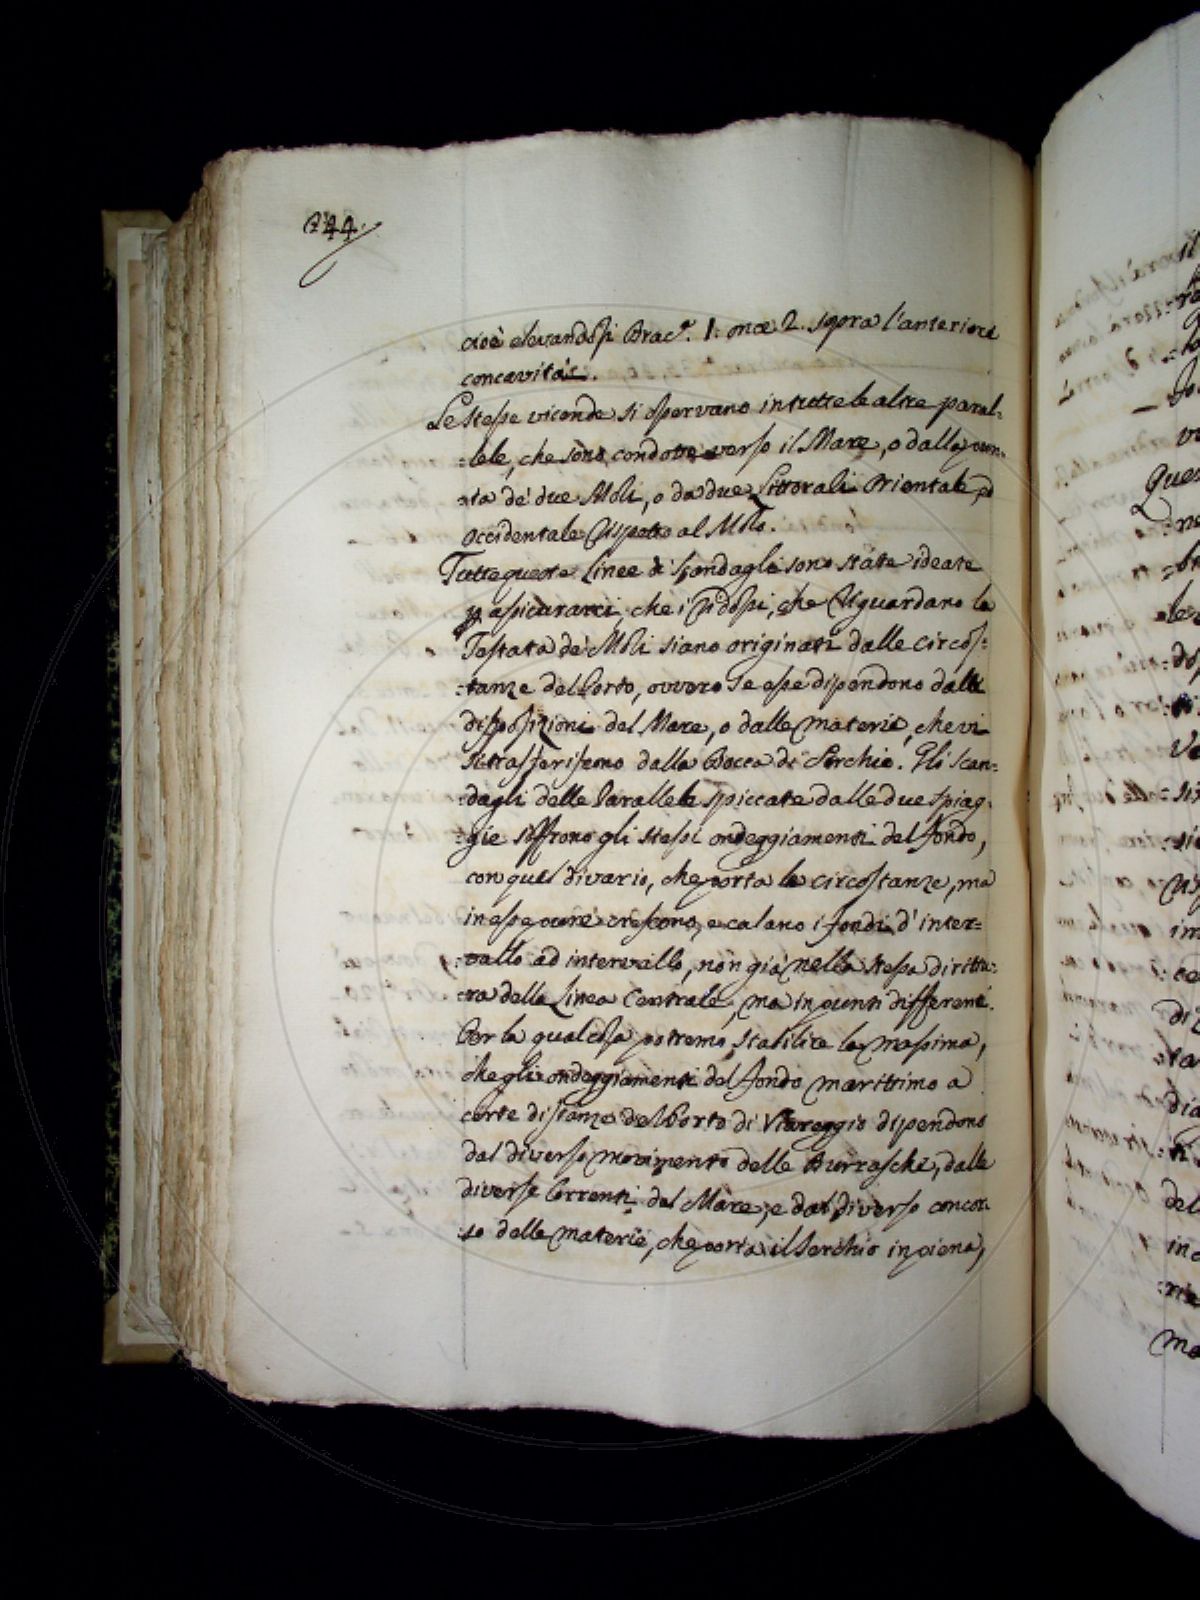 244.
cioè elevandosi Brac.ª 1. once 2. sopra l'anteriore
concavità.
Le stesse vicende si osservano in tutte le altre paral=
=lele, che sono condotte verso il Mare, o dalla pun=
=ta de' due Moli, o da due Littorali Orientale, ed
occidentale rispetto al Molo.
Tutte queste Linee di Scandaglio sono state ideate
per assicurarci, che i ridossi, che riguardano la
Testata de' Moli siano originati dalle circos=
=tanze del Porto, ovvero se esse dipendono dalle
disposizioni del Mare, o dalle materie, che vi
si trasferiscono dalla Bocca di Serchio. Gli scan=
=dagli delle Parallele spiccate dalle due spiag=
=gie soffrono gli stessi ondeggiamenti del fondo,
con quel divario, che porta le circostanze, ma
in esse pure crescono, e calano i fondi d' inter=
=vallo ad intervallo, non già nella stessa dirittu=
=ra della Linea Centrale, ma in punti differenti.
Per la qual cosa potremo stabilire la massima,
che gli ondeggiamenti del fondo marittimo a
certe distanze del Porto di Viareggio dipendono
dal diverso movimento delle Burrasche, dalle
diverse Correnti del Mare, e dal diverso concor=
=so delle materie, che porta il Serchio in piena,